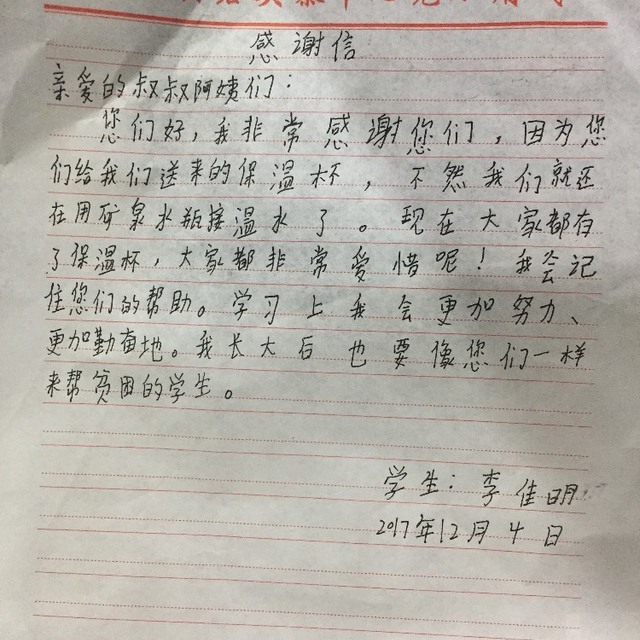 感谢信
亲爱的叔叔阿姨们：
您们好，我非常感谢您们，因为您
们给我们送来的保温杯，不然我们就还
在用矿泉水瓶接温水了。现在大家都有
了保温杯，大家都非常爱惜呢！我会记
住您们的帮助。学习上我会更加努力、
更加勤奋地。我长大后也要像您们一样
来帮贫困的学生。
学生：李佳明
2017年12月4日